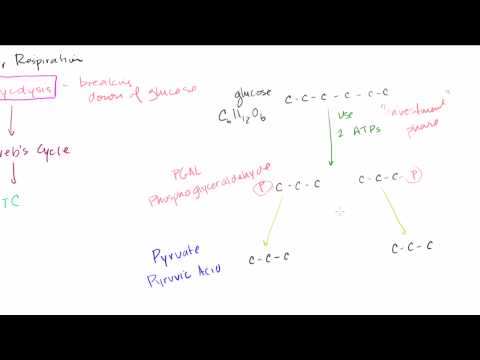 r Respiration
ycolysis - breaking
down of glucose
reb's Cycle
TC
glucose
C6H12O6
C-C-C-C-C-C
use
2 ATPs
"investment"
phase
PGAL
Phosphoglyceraldehyde
P C-C-C
C-C-C-P
Pyruvate
Pyruvic Acid
C-C-C
C-C-C